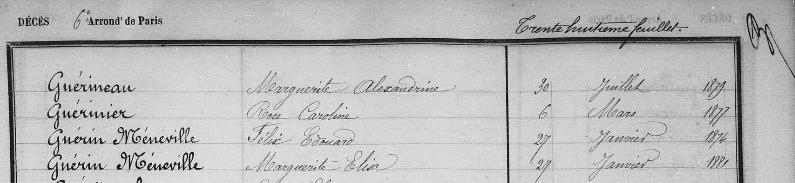 DÉCÈS 6e Arrondt de Paris Trente huitième feuillet.
Guérineau Marguerite Alexandrine 30 Juillet 1879
Guérinier Rose Caroline 6 Mars 1877
Guérin Méneville Félix Edouard 27 Janvier 1874
Guérin Méneville Marguerite Elisa 29 Janvier 1881